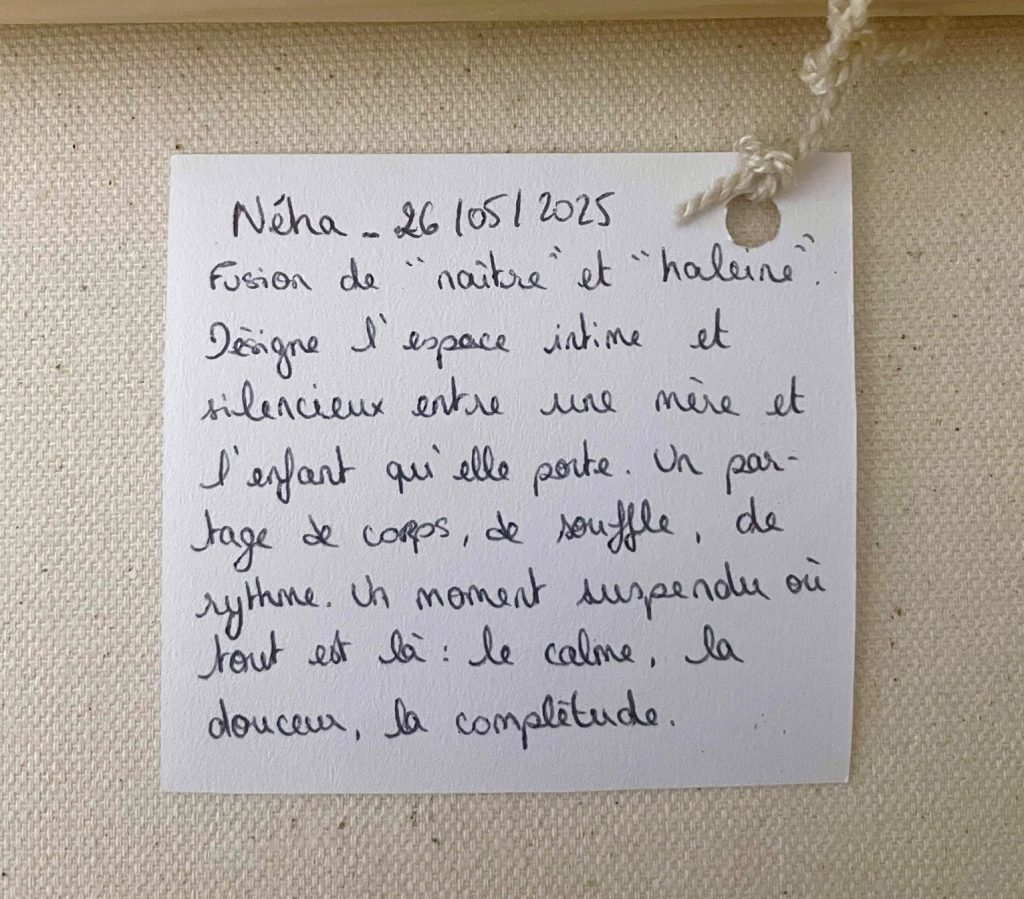 Néha - 26/05/2025
Fusion de "naître" et "haleine".
Désigne l'espace intime et
silencieux entre une mère et
l'enfant qu'elle porte. Un par-
tage de corps, de souffle, de
rythme. Un moment suspendu où
tout est là : le calme, la
douceur, la complétude.